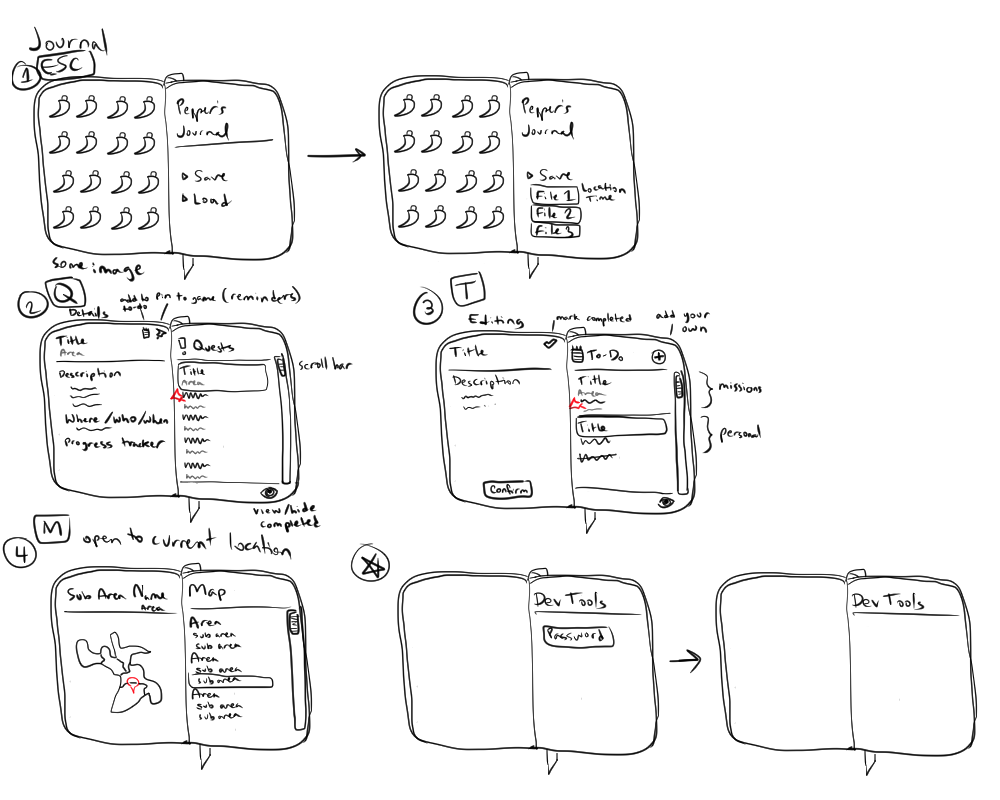 Journal
1 ESC
Pepper's
Journal
▷ Save
▷ Load
some image
Pepper's
Journal
▷ Save
File 1
Location
Time
File 2
File 3
2 Q
Details
add to
to-do
Pin to game (reminders)
Title
Area
Description
Where/who/when
Progress tracker
! Quests
Title
Area
scroll bar
view/hide
completed
3 T
Editing
mark completed
add your
own
Title
Description
Confirm
To-Do +
Title
Area
missions
Title
personal
4 M open to current location
Sub Area Name
Area
Map
Area
sub area
sub area
Area
sub area
sub area
Area
sub area
sub area
Dev Tools
Password
Dev Tools